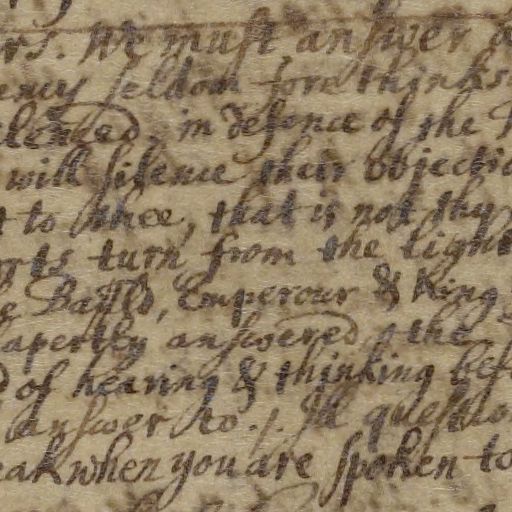 rs. We must answer a
ency seldom forethinks
in defence of the
will silence their objectio
t to thee, that is not thy
rts turn from the light
Emperour & King
apertly answered the
d of hearing & thinking bef
answer to. /. Ill questio
eak when you are spoken to